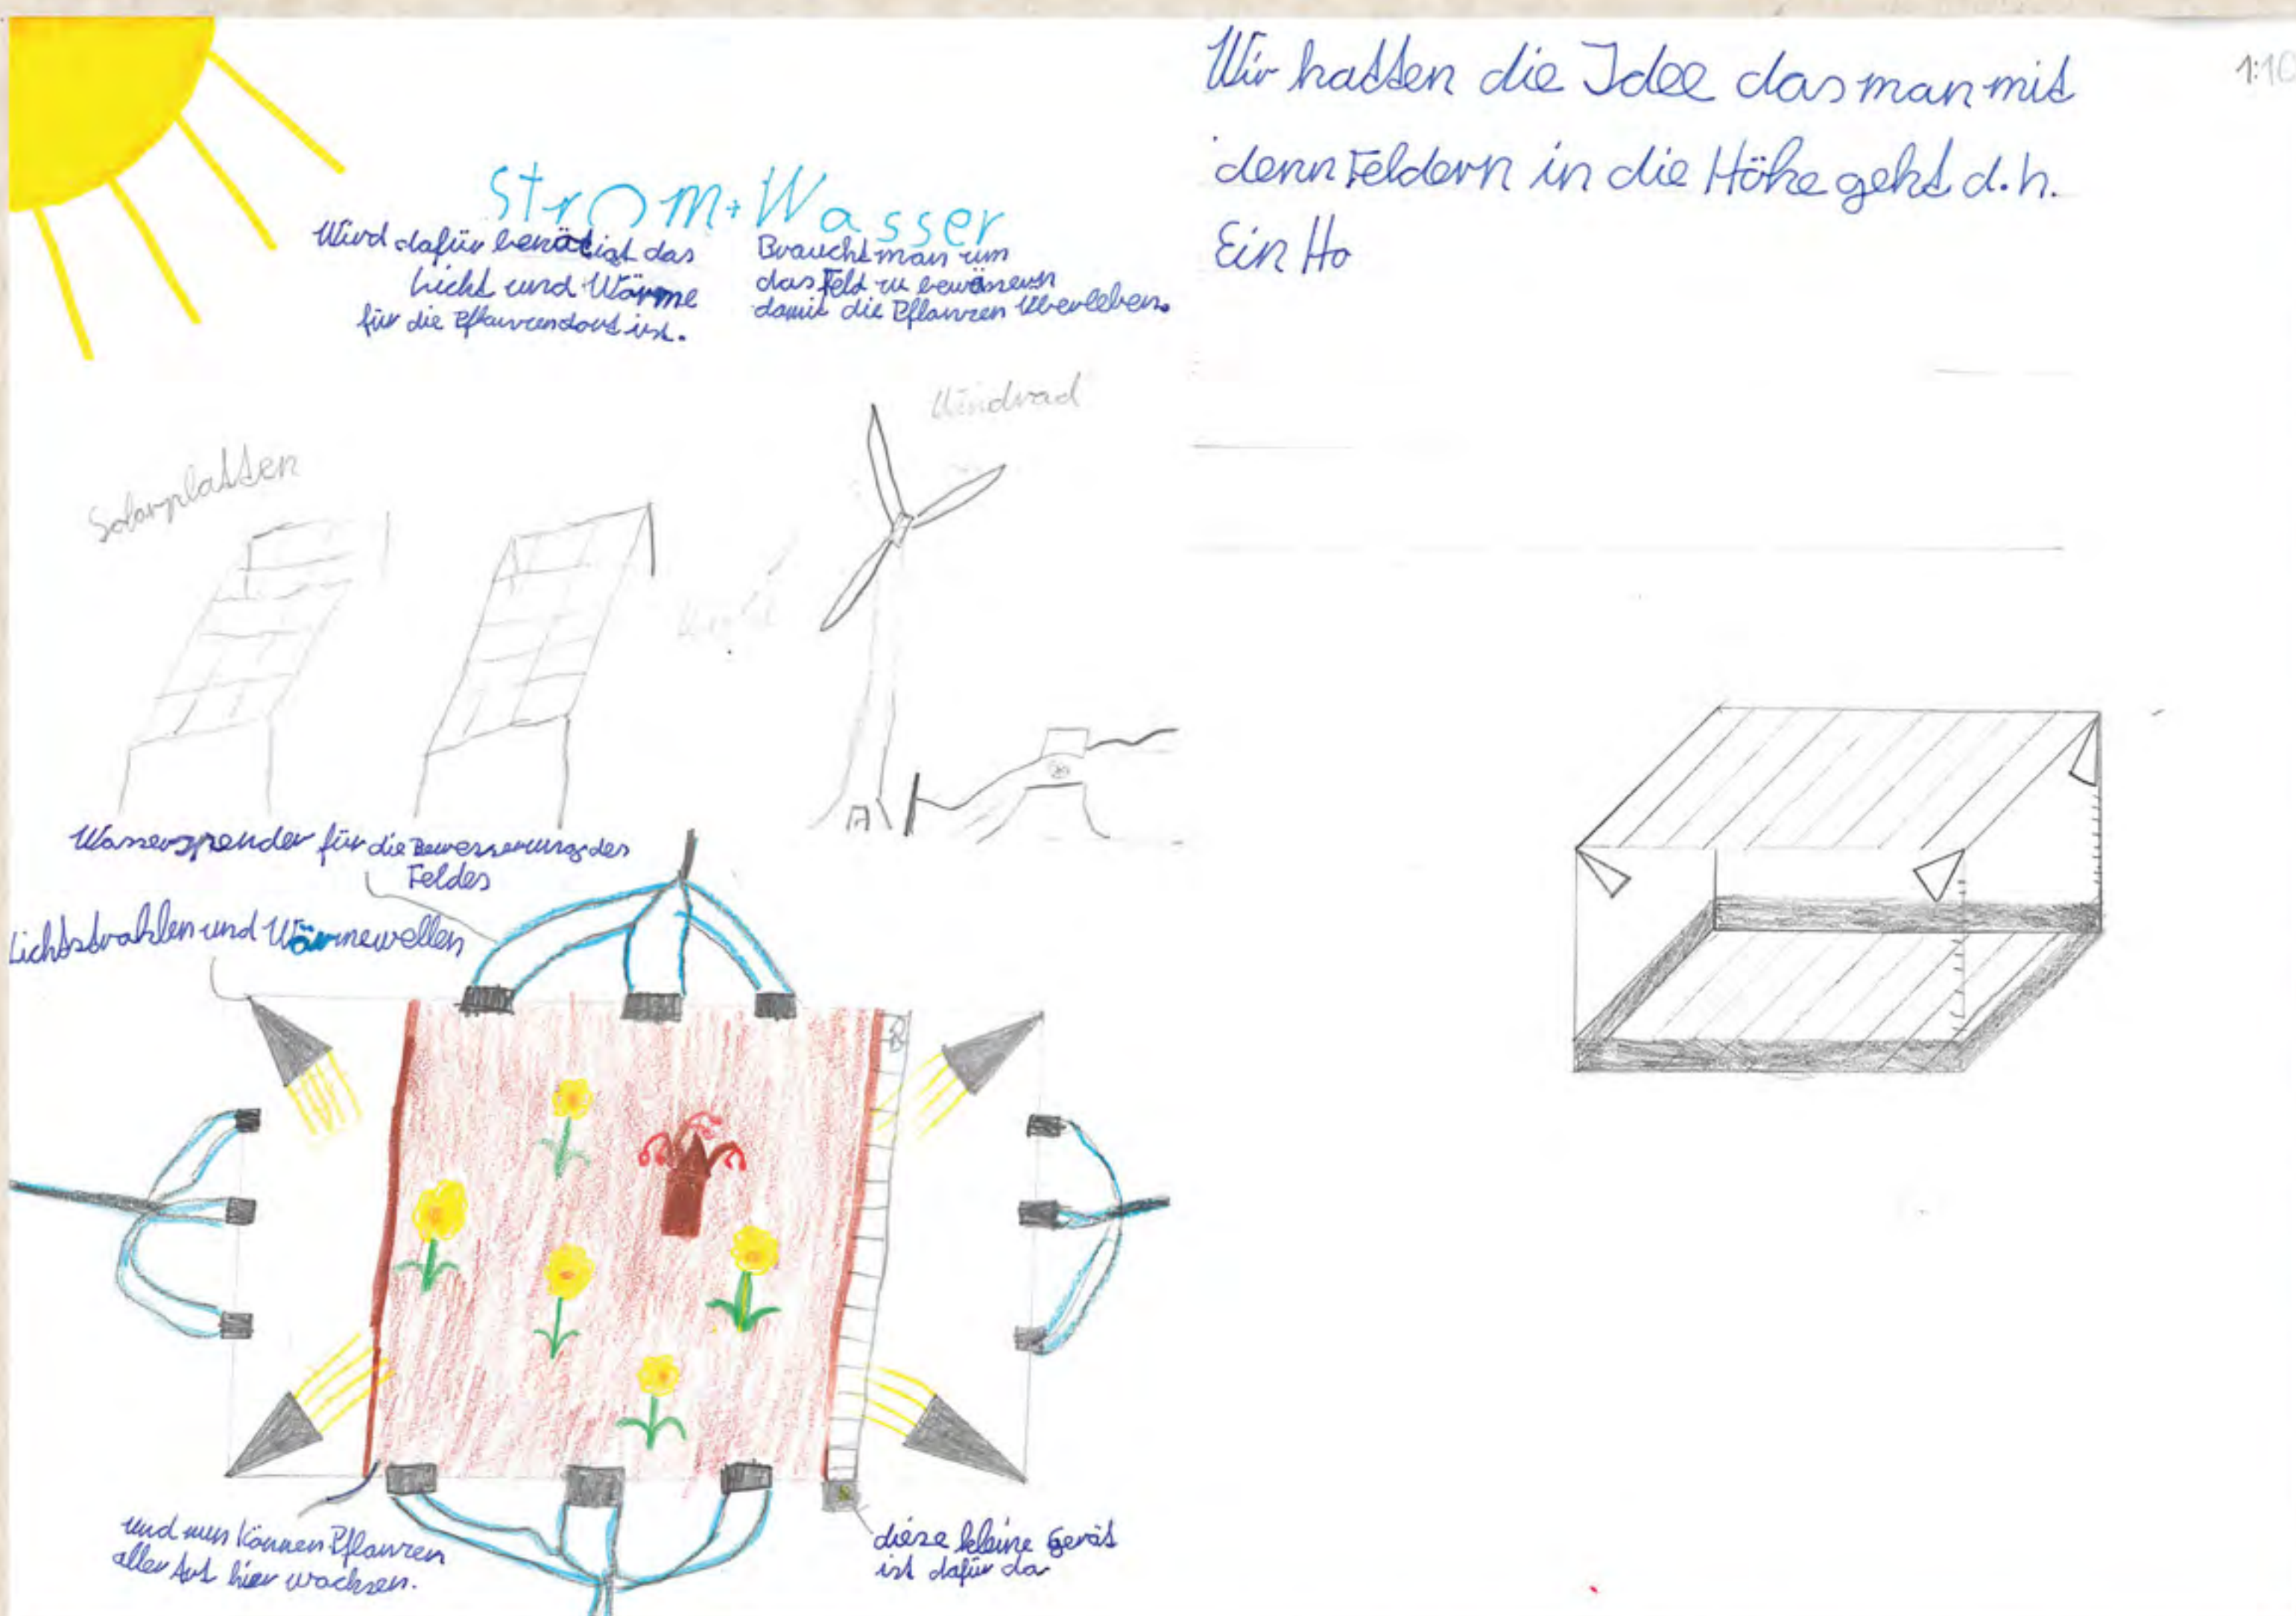 Strom+Wasser
Wird dafür benötigt das
Licht und Wärme
für die Pflanzen dort ist.
Braucht man um
das Feld zu bewässern
damit die Pflanzen überleben.
Solarplatten
Windrad
Wasserspender für die Bewesserung des
Feldes
Lichtstrahlen und Wärmewellen
und nun können Pflanzen
aller Art hier wachsen.
diese kleine Gerät
ist dafür da
Wir hatten die Idee das man mit
denn Feldern in die Höhe geht d.h.
Ein Ho
1:10